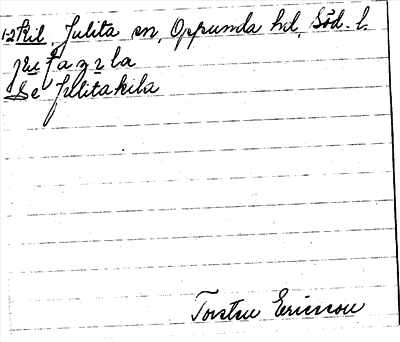 12 Kil, Julita sn, Oppunda hd, Söd. l.
Se Julitakila
Torsten Ericsson